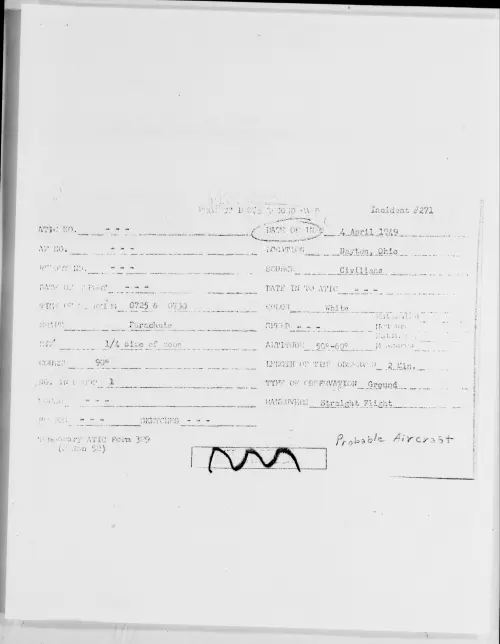 Incident #271
ATIC NO. - - -
DATE OF INFO 4 April 1949
AF NO. - - -
LOCATION Dayton, Ohio
REPORT NO. - - -
SOURCE Civilians
DATE OF REPORT - - -
DATE IN TO ATIC - - -
0725 & 0730
COLOR White
SHAPE Parachute
SPEED - - -
SIZE 1/4 size of moon
ALTITUDE 50°-60°
COURSE 90°
LENGTH OF TIME OBSERVED 2 Min.
NO. IN GROUP 1
TYPE OF OBSERVATION Ground
- - -
MANEUVERS Straight Flight
- - - SKETCHES - - -
Temporary ATIC Form 329
(2 Jan 52)
Probable Aircraft